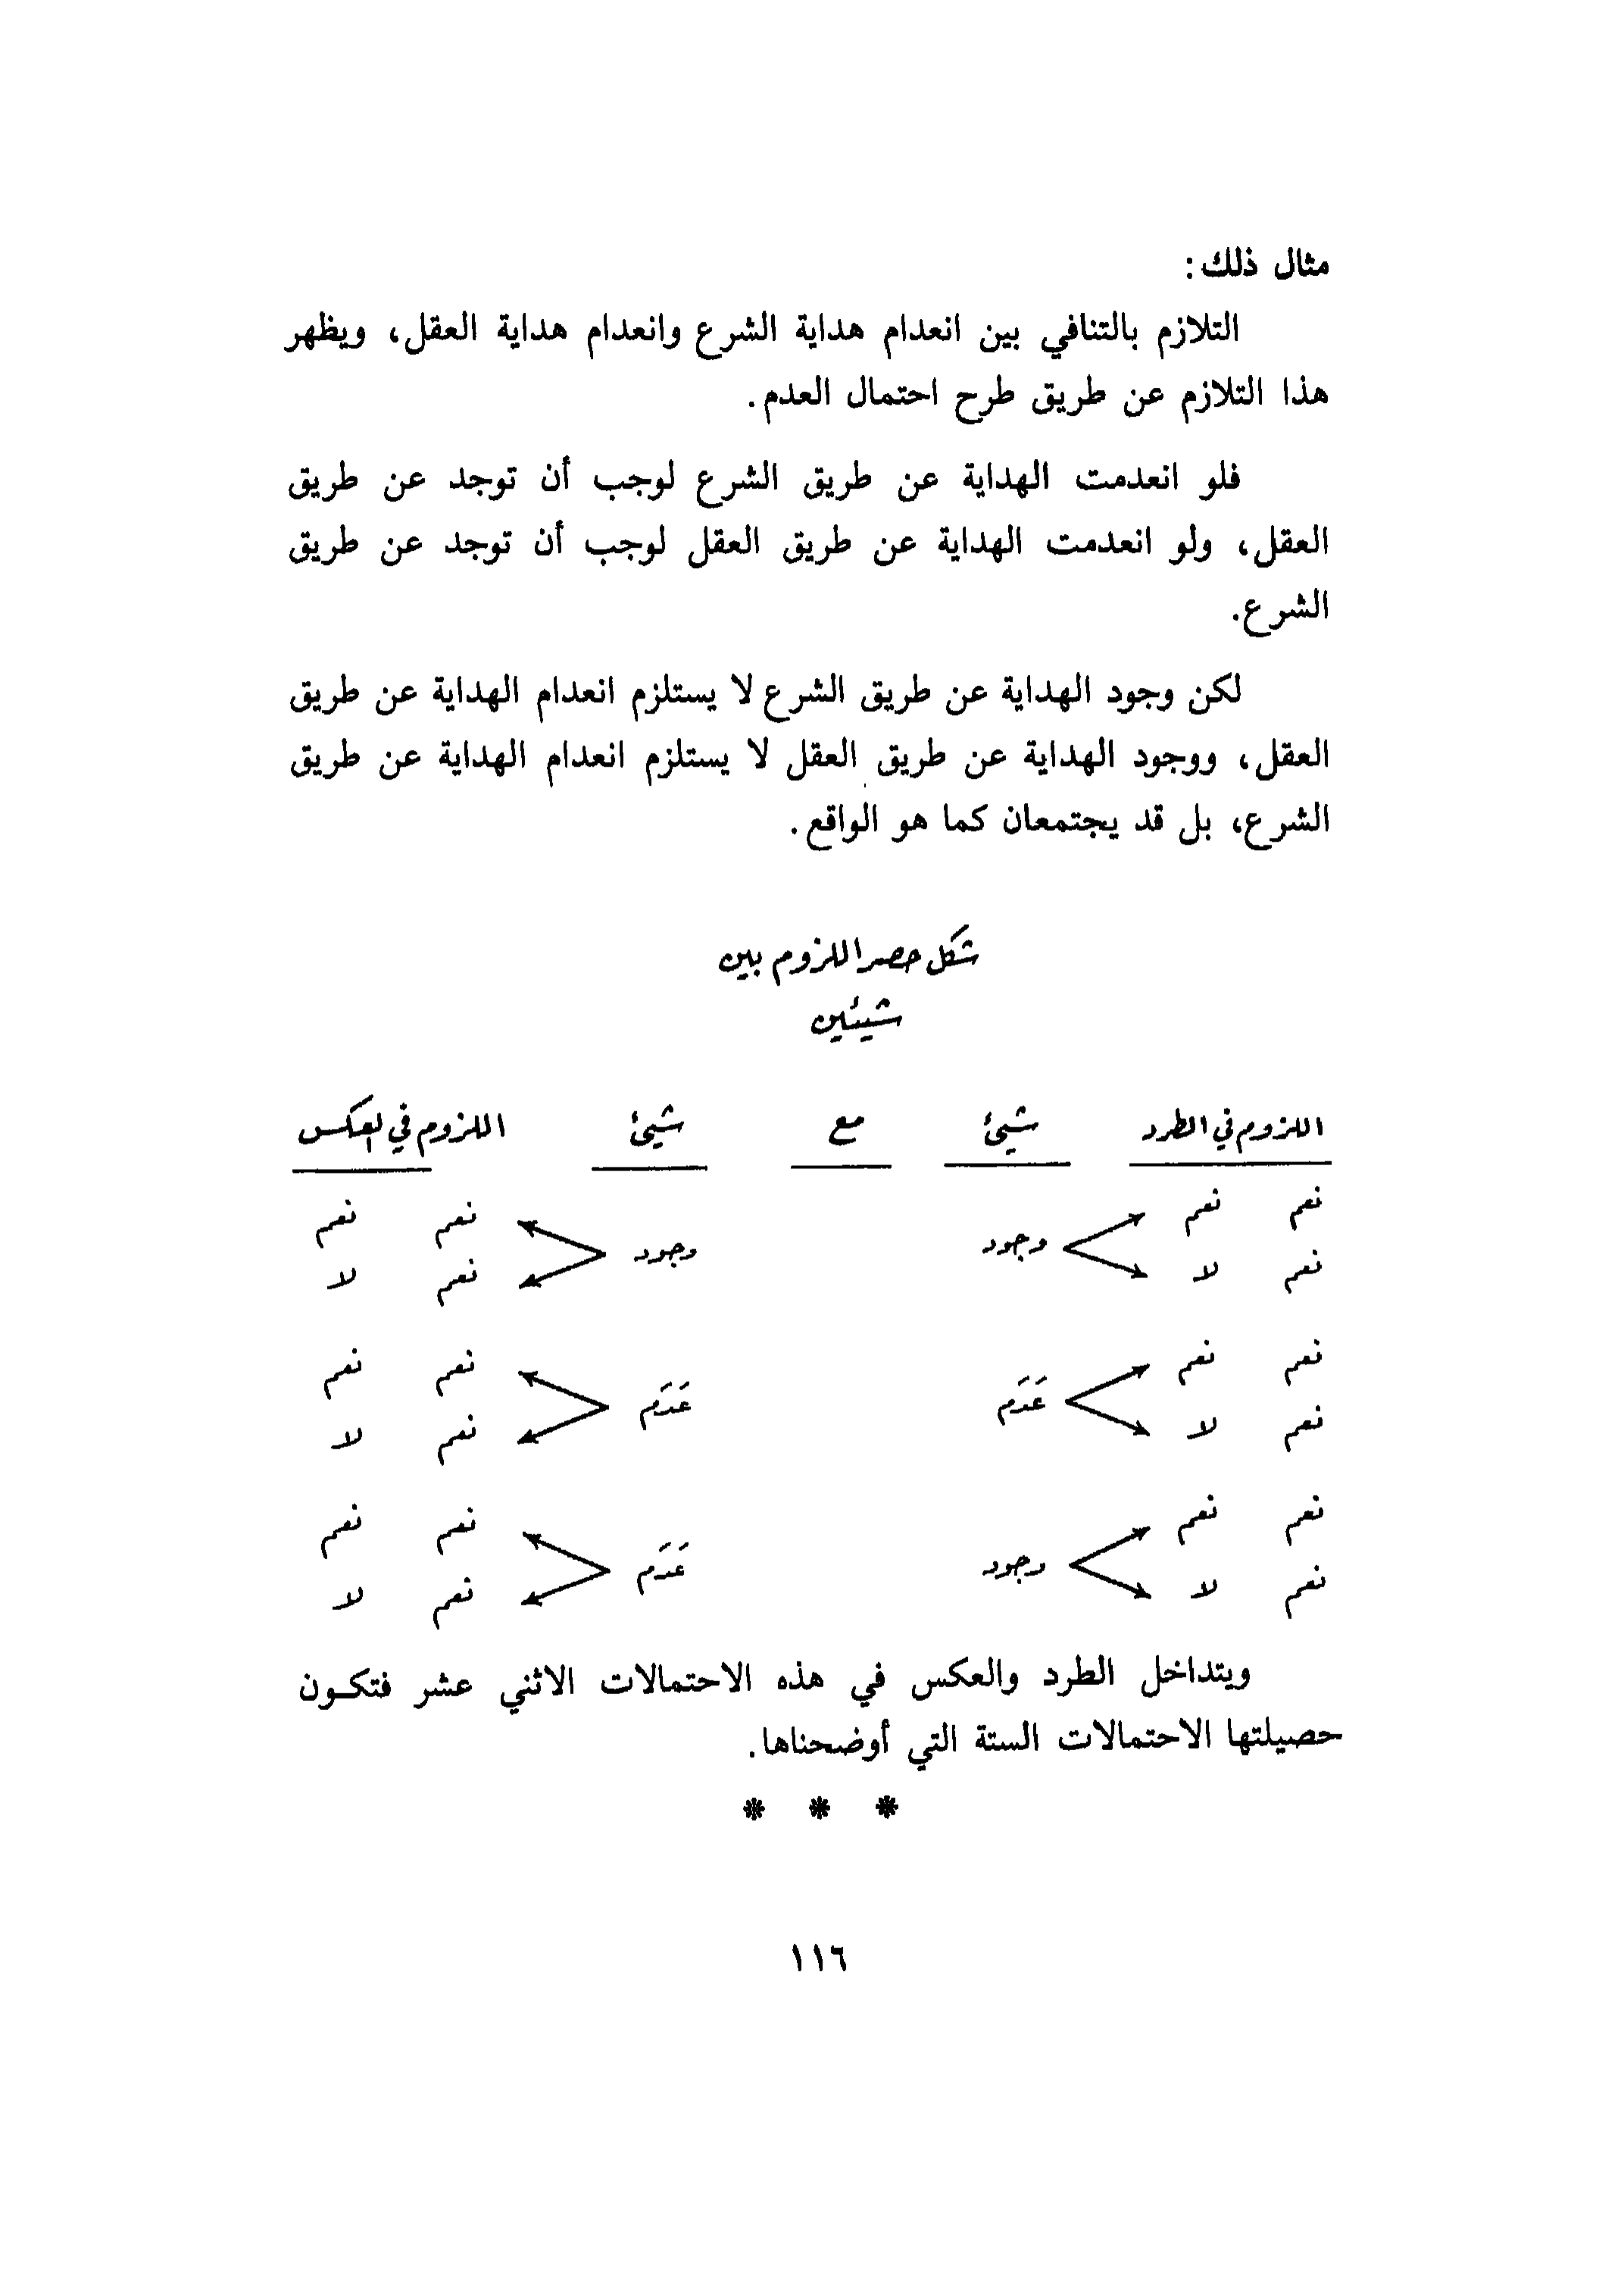 مثال ذلك:
التلازم بالتنافي بين انعدام هداية الشرع وانعدام هداية العقل، ويظهر
هذا التلازم عن طريق طرح احتمال العدم.
فلو انعدمت الهداية عن طريق الشرع لوجب أن توجد عن طريق
العقل، ولو انعدمت الهداية عن طريق العقل لوجب أن توجد عن طريق
الشرع.
لكن وجود الهداية عن طريق الشرع لا يستلزم انعدام الهداية عن طريق
العقل، ووجود الهداية عن طريق العقل لا يستلزم انعدام الهداية عن طريق
الشرع، بل قد يجتمعان كما هو الواقع.
شكل حصر اللزوم بين
شيئين
اللزوم في الطرد شيئ مع شيئ اللزوم في العكس
نعم نعم وجود وجود نعم نعم
نعم لا نعم لا
نعم نعم عَدَم عَدَم نعم نعم
نعم لا نعم لا
نعم نعم وجود عَدَم نعم نعم
نعم لا نعم لا
ويتداخل الطرد والعكس في هذه الاحتمالات الاثني عشر فتكـون
حصيلتها الاحتمالات الستة التي أوضحناها.
* * *
١١٦